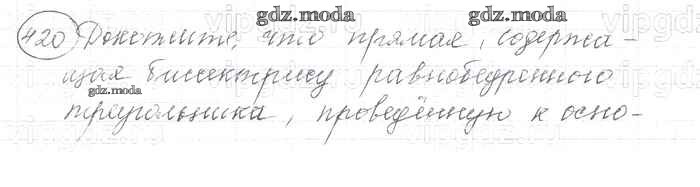 gdz.moda
420 Докажите, что прямая, содержа-
щая биссектрису равнобедренного
gdz.moda
треугольника, проведённую к осно-